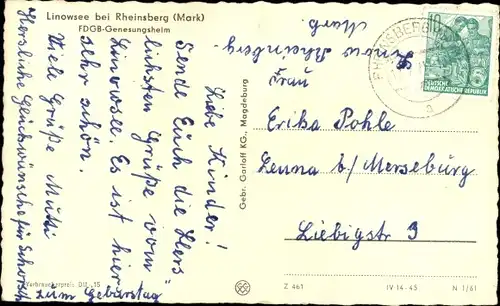 Linowsee bei Rheinsberg (Mark)
FDGB-Genesungsheim
Liebe Kinder!
Sende Euch die Herz
lichsten Grüße vom
Linowsee. Es ist hier
sehr schön.
Viele Grüße Mutti
Herzliche Glückwünsche für
zum Geburtstag
Verbraucherpreis: DM -,15
Gebr. Garloff KG., Magdeburg
Rheinsberg
Mark.
RHEINSBERG
a
10
DEUTSCHE
DEMOKRATISCHE REPUBLIK
Frau
Erika Pohle
Leuna b/ Merseburg
Liebigstr 9
Z 461
IV-14-45
N 1/61